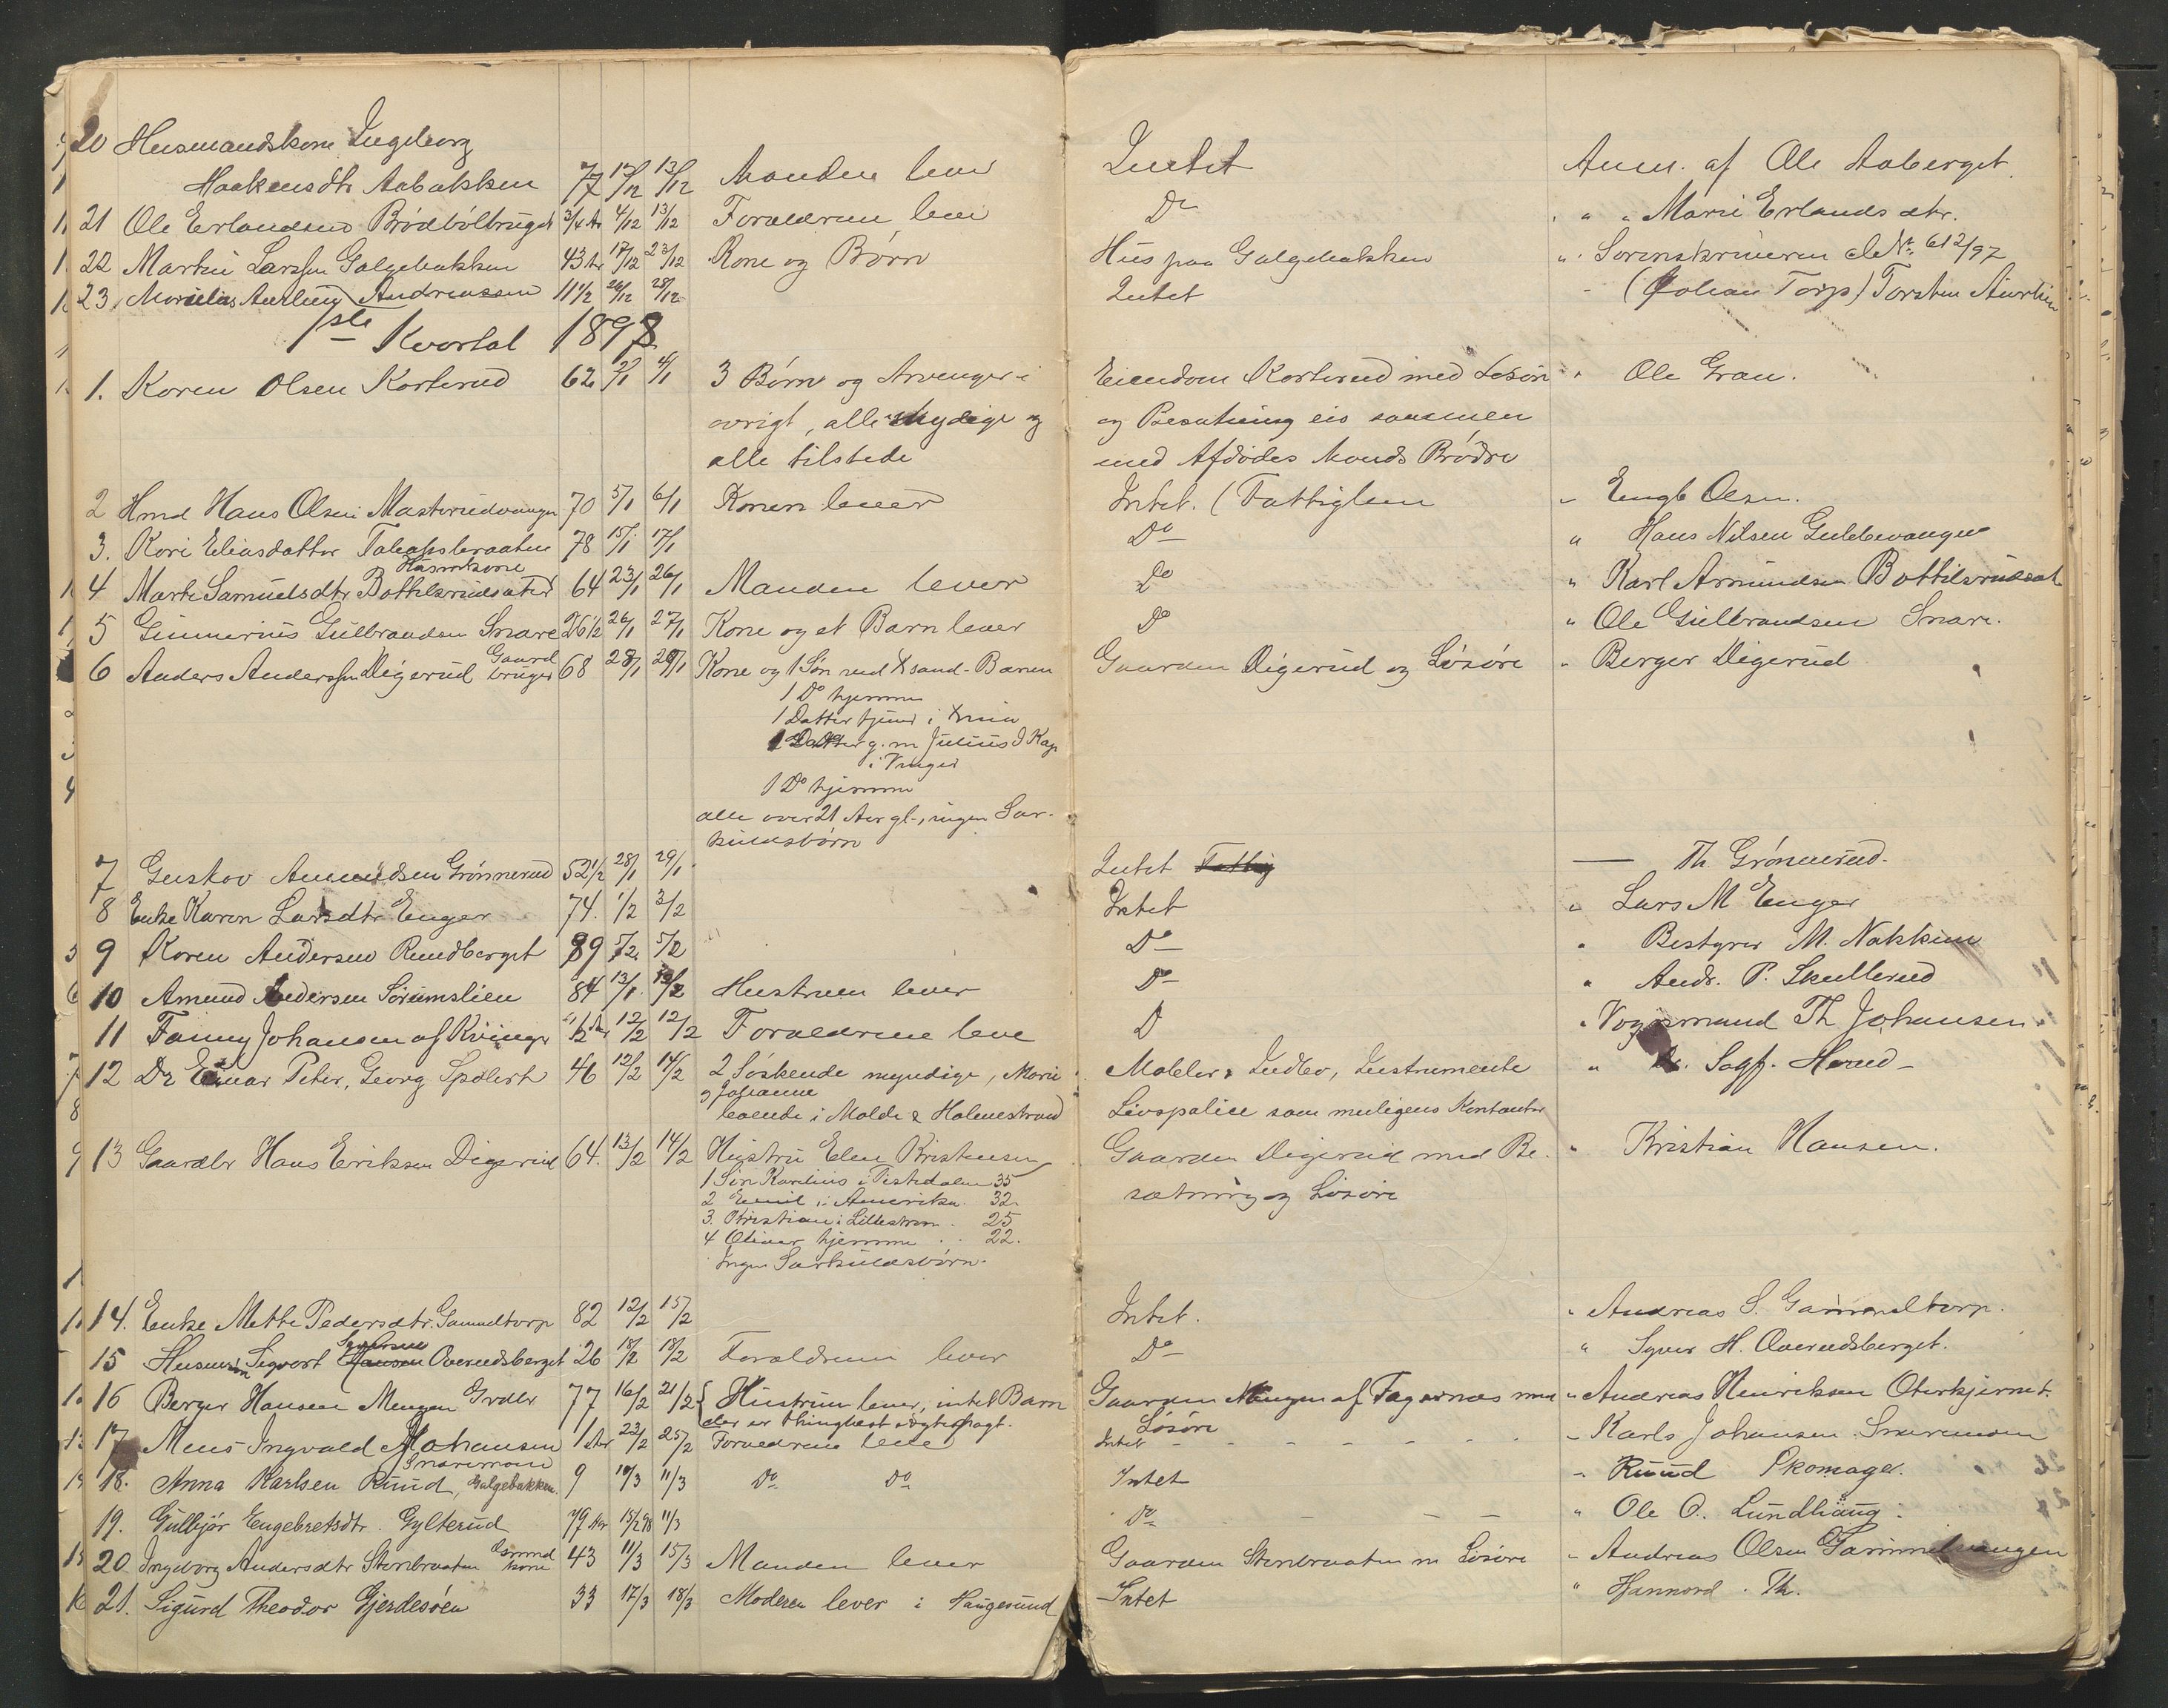 20 Husmandskone Ingeborg
Haakensdtr Aabakken 77 12/12 13/12 Manden lever Intet Anm. af Ole Aaberget.
21 Ole Erlandsen Brødbølbruget 3/4 Ar 4/12 13/12 Forældrene lever Do " " Marie Erlandsdtr.
22 Martin Larssen Galgebakken 43 Ar 17/12 23/12 Kone og Børn Hus paa Galgebakken " Sorenskriveren No 612/97
23 Andreassen 11 1/2 26/12 28/12 Intet - (Johan Torp) Torsten
1ste Kvartal 1898
1. Karen Olsen Korterud 62 2/1 4/1 3 Børn og Arvinger i Eiendom Korterud med Løsøre " Ole Gran.
øvrigt, alle myndige og og Besætning eies sammen
alle tilstede med Afdødes Mands Brødre
2 Hmd Hans Olsen Masterudvangen 70 5/1 6/1 Konen lever Intet. (Fattiglem " Engb Olsen.
3. Kari Eliasdatter 78 15/1 17/1 Do " Hans Nilsen Gulbbevangen
Husmkone
4 Marte Samuelsdtr Bottilsrudsæter 64 23/1 26/1 Manden lever Do " Karl Amundsen Bottilsrudsæt
5 Gunnerius Gulbrandsen Snare 26 1/2 26/1 27/1 Kone og et Barn lever Do " Ole Gulbrandsen Snare.
Gaard
6 Anders Anderssen Digerud bruger 68 28/1 29/1 Kone og 1 Søn ved Xsand-Banen Gaarden Digerud og Løsøre " Berger Digerud
1 Do hjemme
1 Datter tjener i Xnia
1 Datter g. m Julius I Kap
i Vinger
1 Do hjemme
alle over 21 Aar gl-, ingen Sær-
kuldsbørn
7 Gustav Amundsen Grønnerud 52 1/2 28/1 29/1 Intet Fattig — Th Grønnerud.
8 Enke Karen Larsdtr Enger 74. 1/2 3/2 Intet " Lars M Enger
9 Karen Andersen Rundberget 89 5/2 5/2 Do " Bestyrer M. Nakkim
10 Amund Andersen Sørumslien 84 13/1 12/2 Hustruen lever Do " Andr. P. Skullerud
11 Fanny Johansen af Kvinger 1/2 Ar 12/2 12/2 Forældrene leve D " Vognmand Th Johansen
12 Dr Einar Peter, Georg Spølert 46 12/2 14/2 2 Søskende myndige, Marie Møbler, Indbo, Instrumente " Sagf. Herud -
og Johanne
boende i Molde & Holmestrand Livspolice som muligens Kontanter
13 Gaardbr Hans Eriksen Digerud 64. 13/2 14/2 Hustru Elen Kristensen Gaarden Digerud med Be- " Kristian Hansen.
1 Søn Karelius i Tistedalen 35 sætning og Løsøre
2 Emil i Amerika 32.
3. Kristian i Lillestrøm . 25
4 Otinar hjemme . . 22.
Ingen Særkuldsbørn.
14. Enke Mette Pedersdtr. Gammeltorp 82 12/2 15/2 Intet. " Andreas S. Gammeltorp.
Syversen
15 Husmdsøn Sigvart Hansen Overudsberget 26 18/2 18/2 Forældrene lever Do " Syver H. Overudsberget.
16 Berger Hansen Mengen Grdbr 77 16/2 21/2 { Hustruen lever, intet Barn Gaarden Mengen af Fagernæs med " Andreas Henriksen Oterkjernet.
der er thinglæst ægtepagt. Løsøre
17 Mens Ingvald Johansen 1 Aar 23/2 25/2 Forældrene lever Intet - - - - - - - Karls Johansen Snaremoen
Snaremoen
18. Anna Karlsen Ruud, Galgebakken. 9 10/3 11/3 Do Do Intet - Ruud Skomager.
19. Gulbjør Engebretsdtr. Gylterud 79 Aar 15/2 98 11/3 Do - - - " Ole O. Lundhaug.
20. Ingeborg Andersdtr Stenbraaten Gsmnd kone 43 11/3 15/3 Manden lever Gaarden Stenbraaten m Løsøre - Andreas Olsen Gammelvangen
21. Sigurd Theodor Gjerdesøen 33 17/3 18/3 Moderen lever i Haugesund Intet " Hannord. Th.